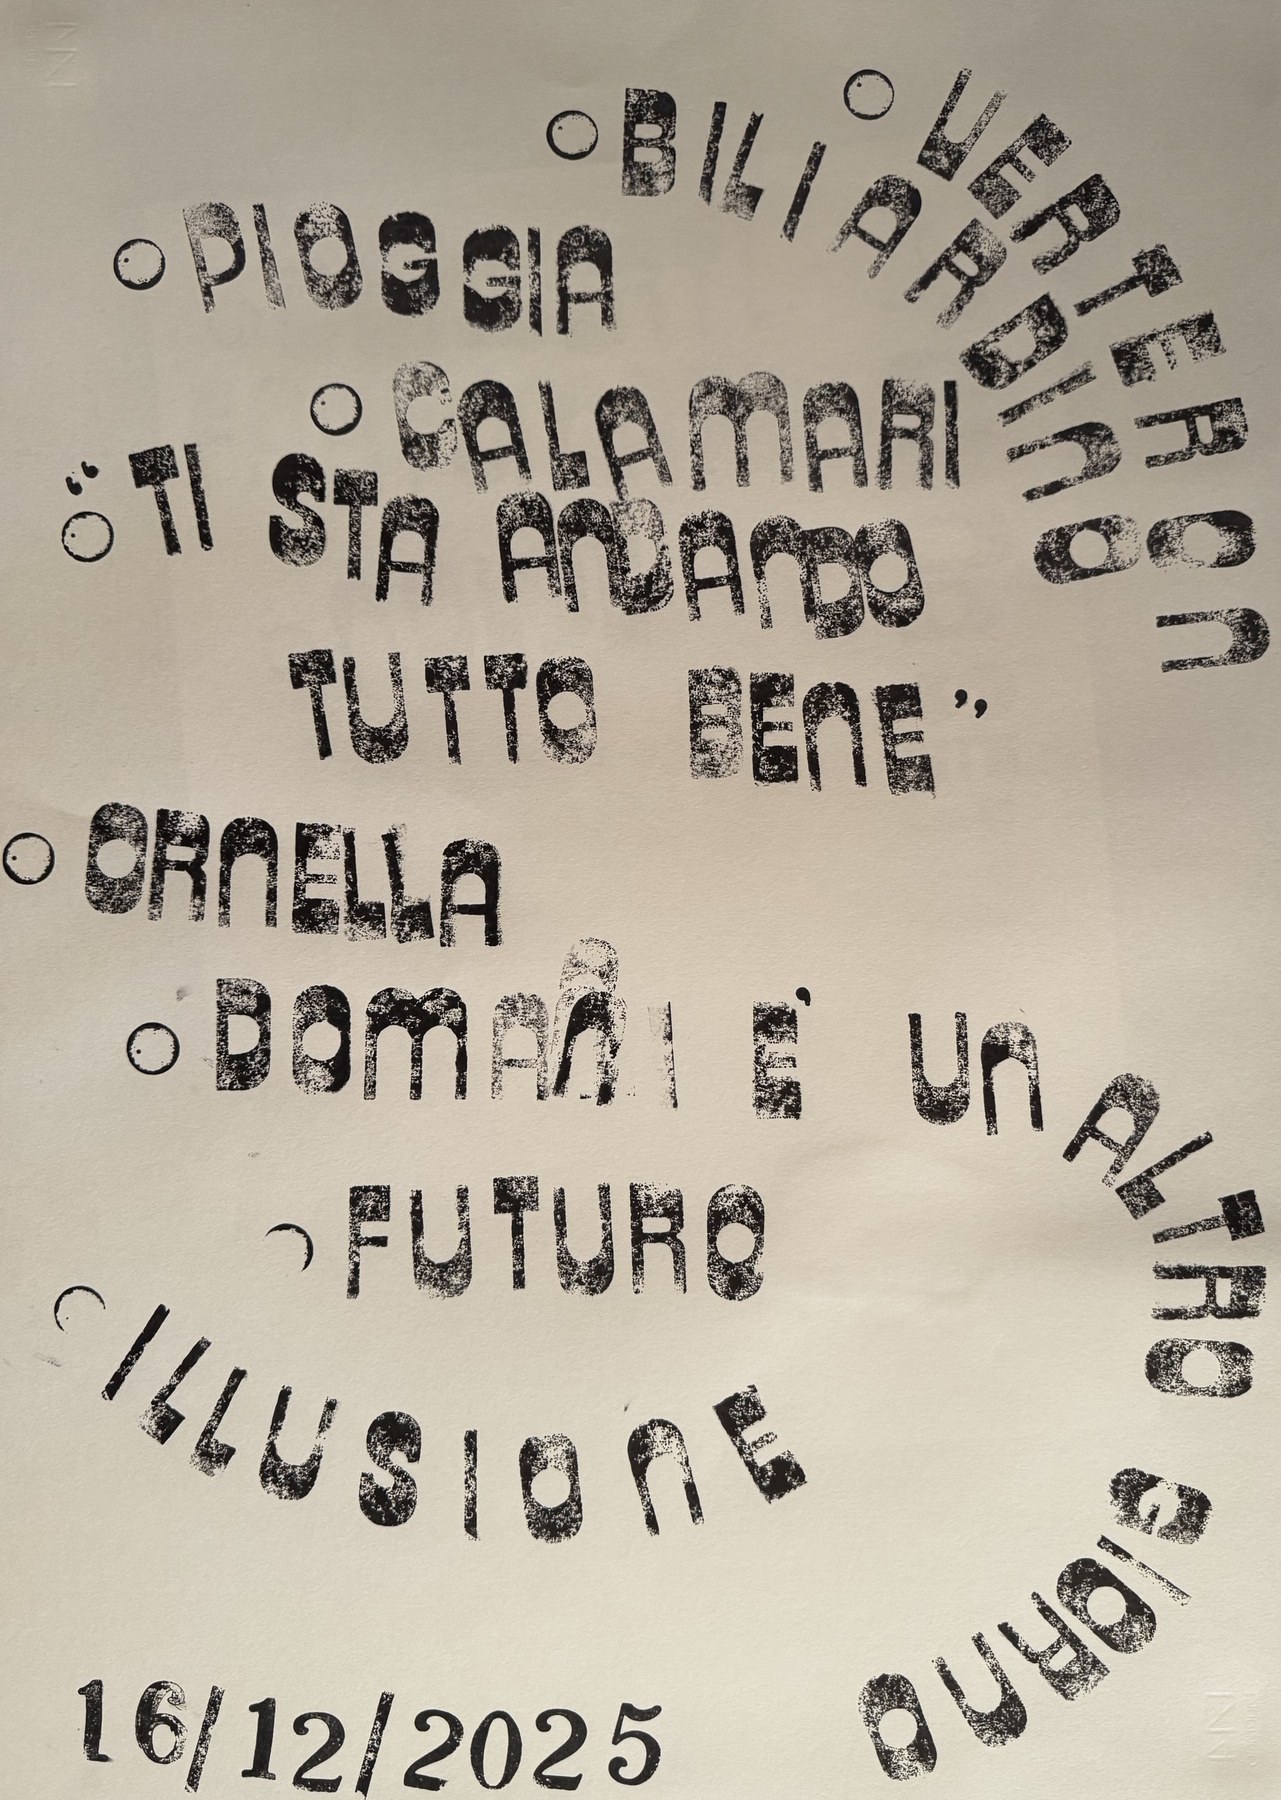 BILIARDINO
UERTERON
PIOGGIA
CALAMARI
“TI STA ANDANDO
TUTTO BENE”
ORNELLA
DOMANI E' UN ALTRO GIORNO
FUTURO
ILLUSIONE
16/12/2025